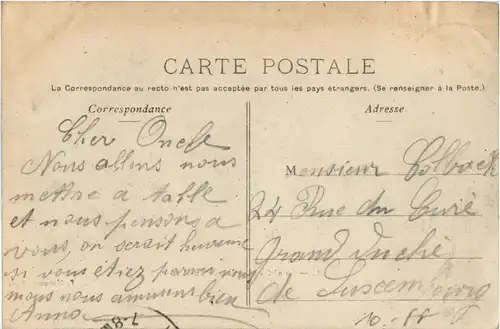 CARTE POSTALE
La Correspondance au recto n'est pas acceptée par tous les pays étrangers. (Se renseigner à la Poste.)
Correspondance
Cher Oncle
Nous allons nous
mettre à table
et nous pensons à
vous, on serait heureux
si vous étiez parmi nous
mais nous amusons bien
Anna
Adresse
Monsieur Colbach
24 Rue du Curé
Grand Duché
de Luxembourg